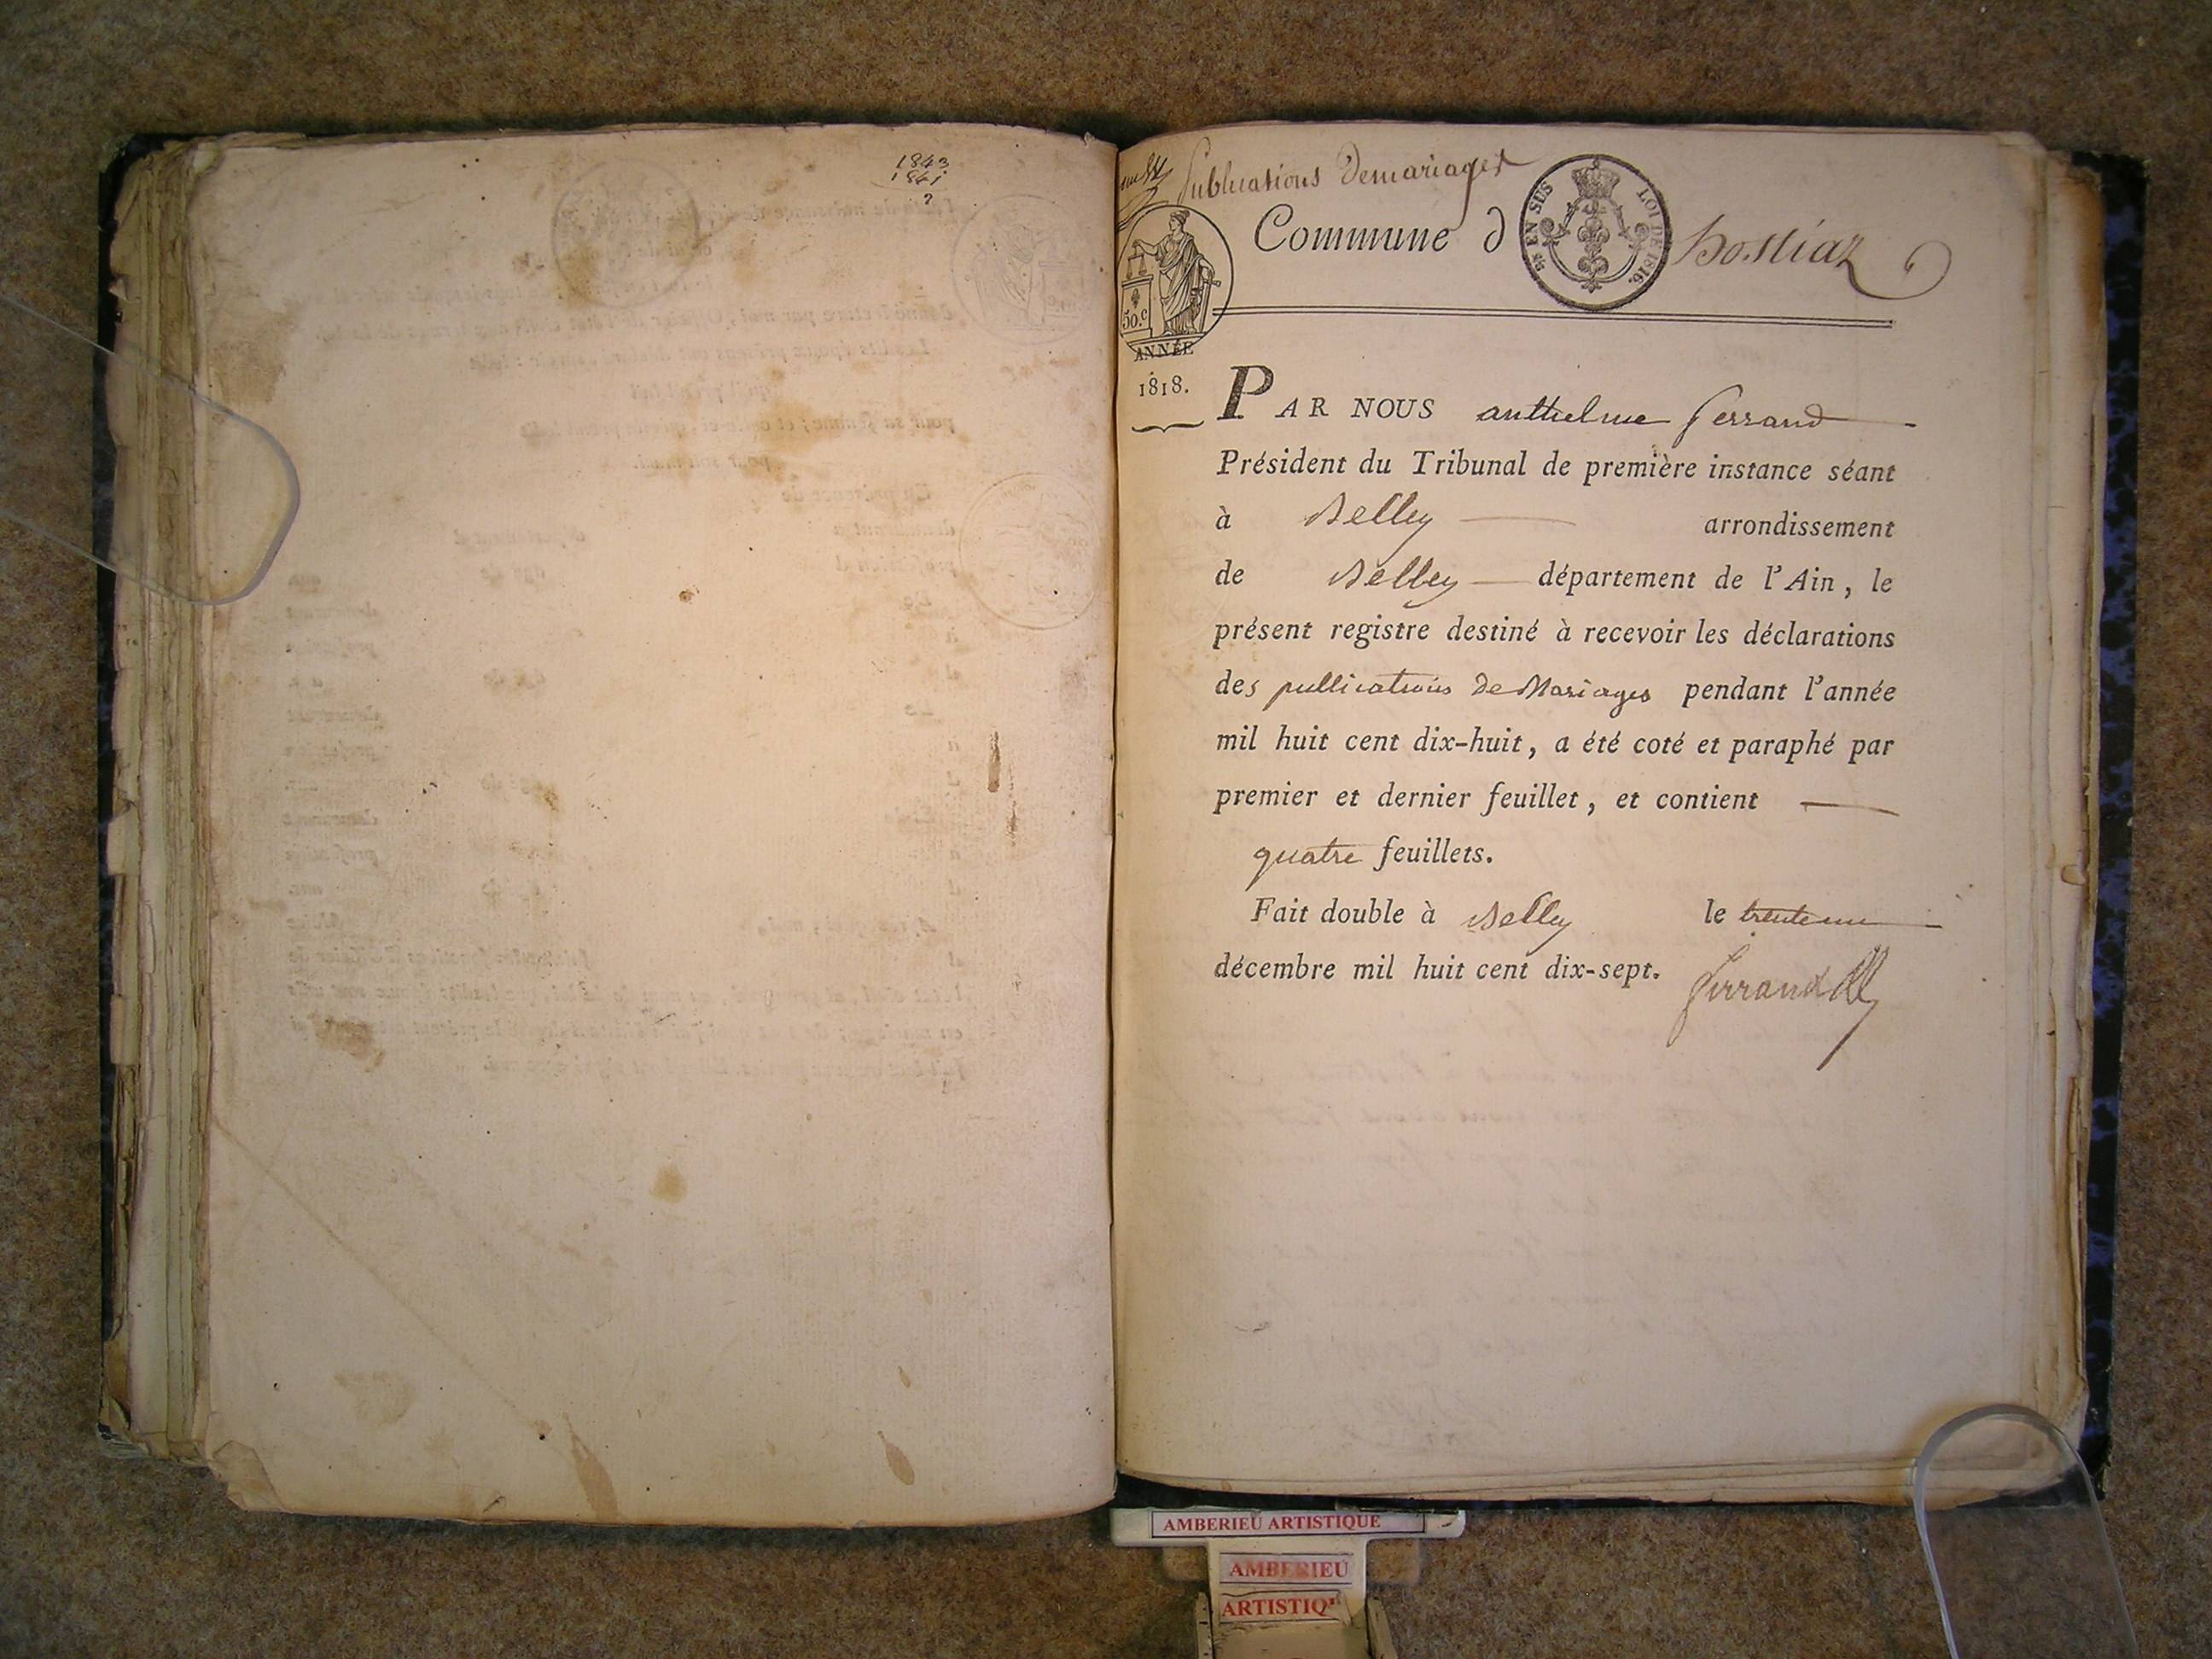 1843
1841
?
Publications de mariages
Commune d hostiaz
EN SUS LOI DE 1816.
50.c
ANNÉE
1818.
PAR NOUS anthelme ferrand
Président du Tribunal de première instance séant
à Belley arrondissement
de Belley département de l'Ain, le
présent registre destiné à recevoir les déclarations
des publications de Mariages pendant l'année
mil huit cent dix-huit, a été coté et paraphé par
premier et dernier feuillet, et contient
quatre feuillets.
Fait double à Belley le trente un
décembre mil huit cent dix-sept.
ferrand
AMBERIEU ARTISTIQUE
AMBERIEU
ARTISTIQ